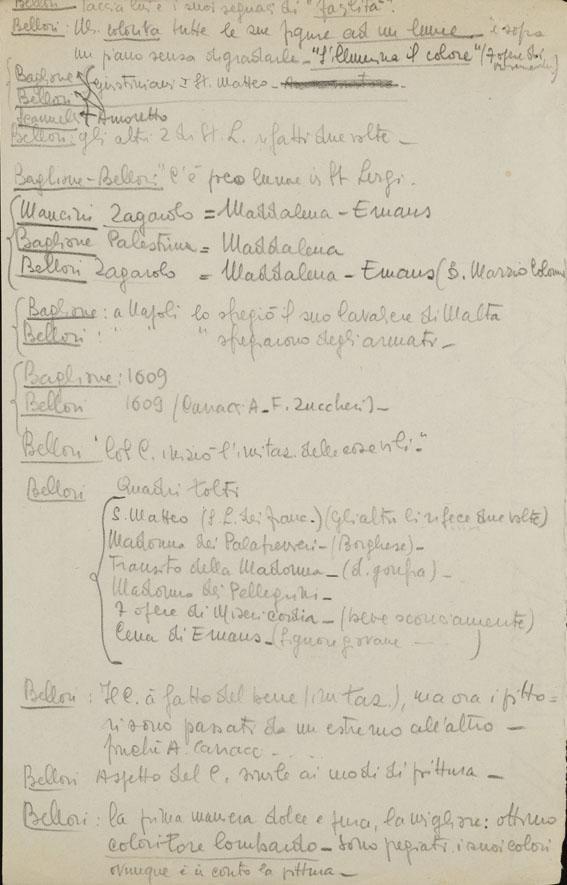 Bellori taccia lui e i suoi seguaci di "facilità".
Bellori: Us. colorita tutte le sue figure ad un lume e sopra
un piano senza degradarle - "S'illumina il colore" (7 opere di
Misericordia)
Baglione Giustiniani I St. Matteo -
Bellori
Scannelli Amoretto
Bellori: gli altri 2 di St. L. rifatti due volte -
Baglione-Bellori "C'è poco lume in St Luigi.
Mancini Zagarolo = Maddalena - Emaus
Baglione Palestrina = Maddalena
Bellori Zagarolo = Maddalena - Emaus (D. Marzio Colonna)
Baglione: a Napoli lo sfregiò il suo Cavaliere di Malta
Bellori " " " sfregiarono degli armati -
Baglione: 1609
Bellori 1609 (Caracci A. F. Zuccheri) -
Bellori "Col C. iniziò l'imitaz. delle cose vili."
Bellori Quadri tolti
S. Matteo (S. L. dei Franc.) (Gli altri li rifece due volte)
Madonna dei Palafrenieri - (Borghese) -
Transito della Madonna - (d. gonfia) -
Madonna dei Pellegrini -
7 opere di Misericordia - (beve sconciamente)
Cena di Emaus - (Signore giovane )
Bellori: Il C. à fatto del bene (imitaz.), ma ora i pitto=
ri sono passati da un estremo all'altro -
finchè A. Caracci - . .
Bellori Aspetto del C. simile ai modi di pittura -
Bellori: la prima maniera dolce e pura, la migliore: ottimo
coloritore lombardo - Sono pregiati i suoi colori
ovunque è in conto la pittura -